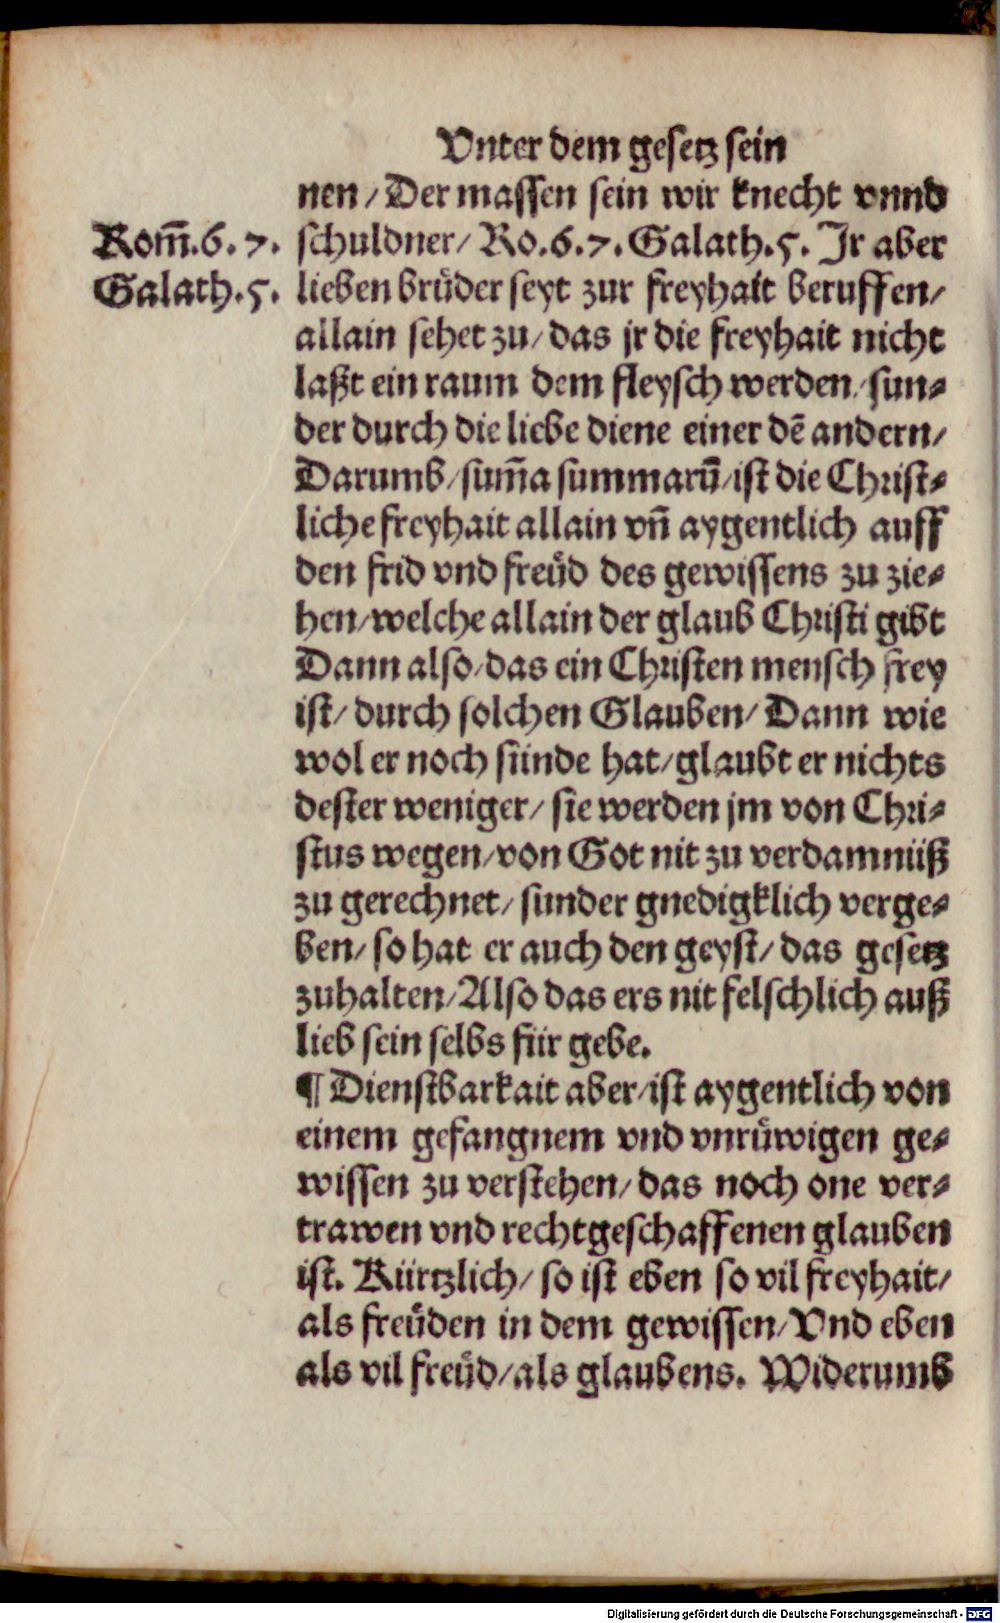 Vnter dem gesetz sein
nen/ Der massen sein wir knecht vnnd
Rom̃.6.7. schuldner/ Ro.6.7. Galath.5. Jr aber
Galath.5. lieben brüder seyt zur freyhait beruffen/
allain sehet zu/ das jr die freyhait nicht
laßt ein raum dem fleysch werden/ sun-
der durch die liebe diene einer dẽ andern/
Darumb/ sum̃a summarũ/ ist die Christ-
liche freyhait allain vñ aygentlich auff
den frid vnd freüd des gewissens zu zie-
hen/ welche allain der glaub Christi gibt
Dann also/ das ein Christen mensch frey
ist/ durch solchen Glauben/ Dann wie
wol er noch sünde hat/ glaubt er nichts
dester weniger/ sie werden jm von Chri-
stus wegen/ von Got nit zu verdamnüß
zu gerechnet/ sunder gnedigklich verge-
ben/ so hat er auch den geyst/ das gesetz
zuhalten/ Also das ers nit felschlich auß
lieb sein selbs für gebe.
¶ Dienstbarkait aber/ ist aygentlich von
einem gefangnem vnd vnrüwigen ge-
wissen zu verstehen/ das noch one ver-
trawen vnd rechtgeschaffenen glauben
ist. Kürtzlich/ so ist eben so vil freyhait/
als freüden in dem gewissen/ Vnd eben
als vil freüd/ als glaubens. Widerumb
Digitalisierung gefördert durch die Deutsche Forschungsgemeinschaft - DFG